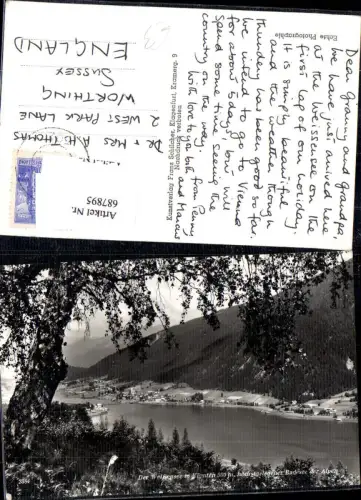 Dear Granny and Grandpa,
We have just arrived here
at the Weissensee on the
first lap of our holiday.
It is simply beautiful
and the weather though
thundery has been good so far.
We intend to go to Vienna
for about 5 days but will
spend some time seeing the
country on the way.
With love to you both from Penny
and Marcus
DR + MRS A. H. THOMAS
2 WEST PARK LANE
WORTHING
SUSSEX
ENGLAND
Echte Photographie
Kunstverlag Franz Schilcher, Klagenfurt,
Nachdruck verboten
Artikel Nr.
687895
Der Weissensee in Kärnten 930 m, höchstgelegener Badesee der Alpen